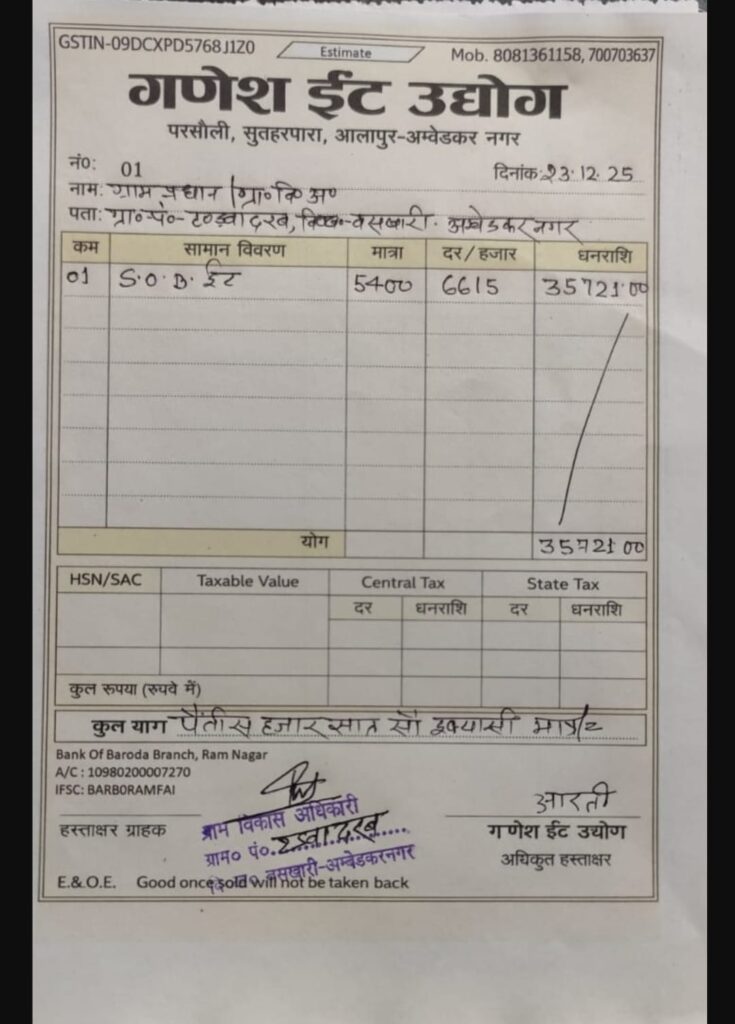 GSTIN-09DCXPD5768J1Z0 Estimate Mob. 8081361158, 700703637
गणेश ईट उद्योग
परसौली, सुतहरपारा, आलापुर-अम्वेडकर नगर
नं०: 01 दिनांक: 23.12.25
नाम: ग्राम प्रधान / ग्रा० वि० अ०
पता: ग्रा० पं०- दरब, वसखारी- अम्बेडकर नगर
कम सामान विवरण मात्रा दर/हजार धनराशि
01 S.O.B. ईट 5400 6615 35721.00
योग 35721 00
HSN/SAC Taxable Value Central Tax State Tax
दर धनराशि दर धनराशि
कुल रूपया (रुपवे में)
कुल याग पैंतीस हजार सात सौ इक्यासी मात्र
Bank Of Baroda Branch, Ram Nagar
A/C : 10980200007270
IFSC: BARB0RAMFAI
आरती
हस्ताक्षर ग्राहक
ग्राम विकास अधिकारी
ग्राम० पं०. दरब
वसखारी-अम्वेडकरनगर
गणेश ईट उद्योण
अधिकुत हस्ताक्षर
E.&.O.E. Good once sold will not be taken back